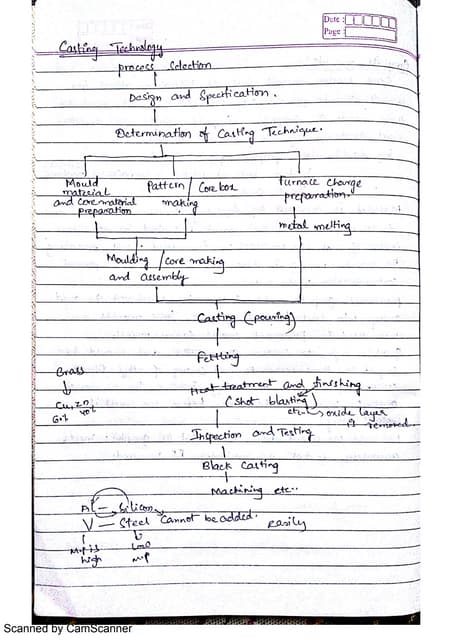 Date :
Page :
Casting Technology
process selection
Design and Specification.
Determination of Casting Technique.
Mould material and core material preparation
Pattern / Core box making
Furnace charge preparation.
metal melting
Moulding / core making
and assembly
Casting (pouring)
Fettling
Brass
Cu, Zn
Heat treatment and finishing.
(shot blasting)
etc. oxide layer
is removed
Inspection and Testing
Black Casting
Machining etc..
Al - Silicon
V - Steel cannot be added easily
M.P is high
Low M.P
Scanned by CamScanner